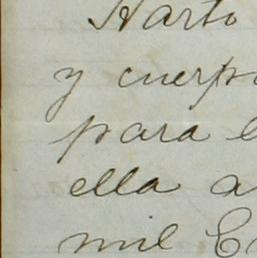 Harto
y cuerpo
para e
ella a
mil C